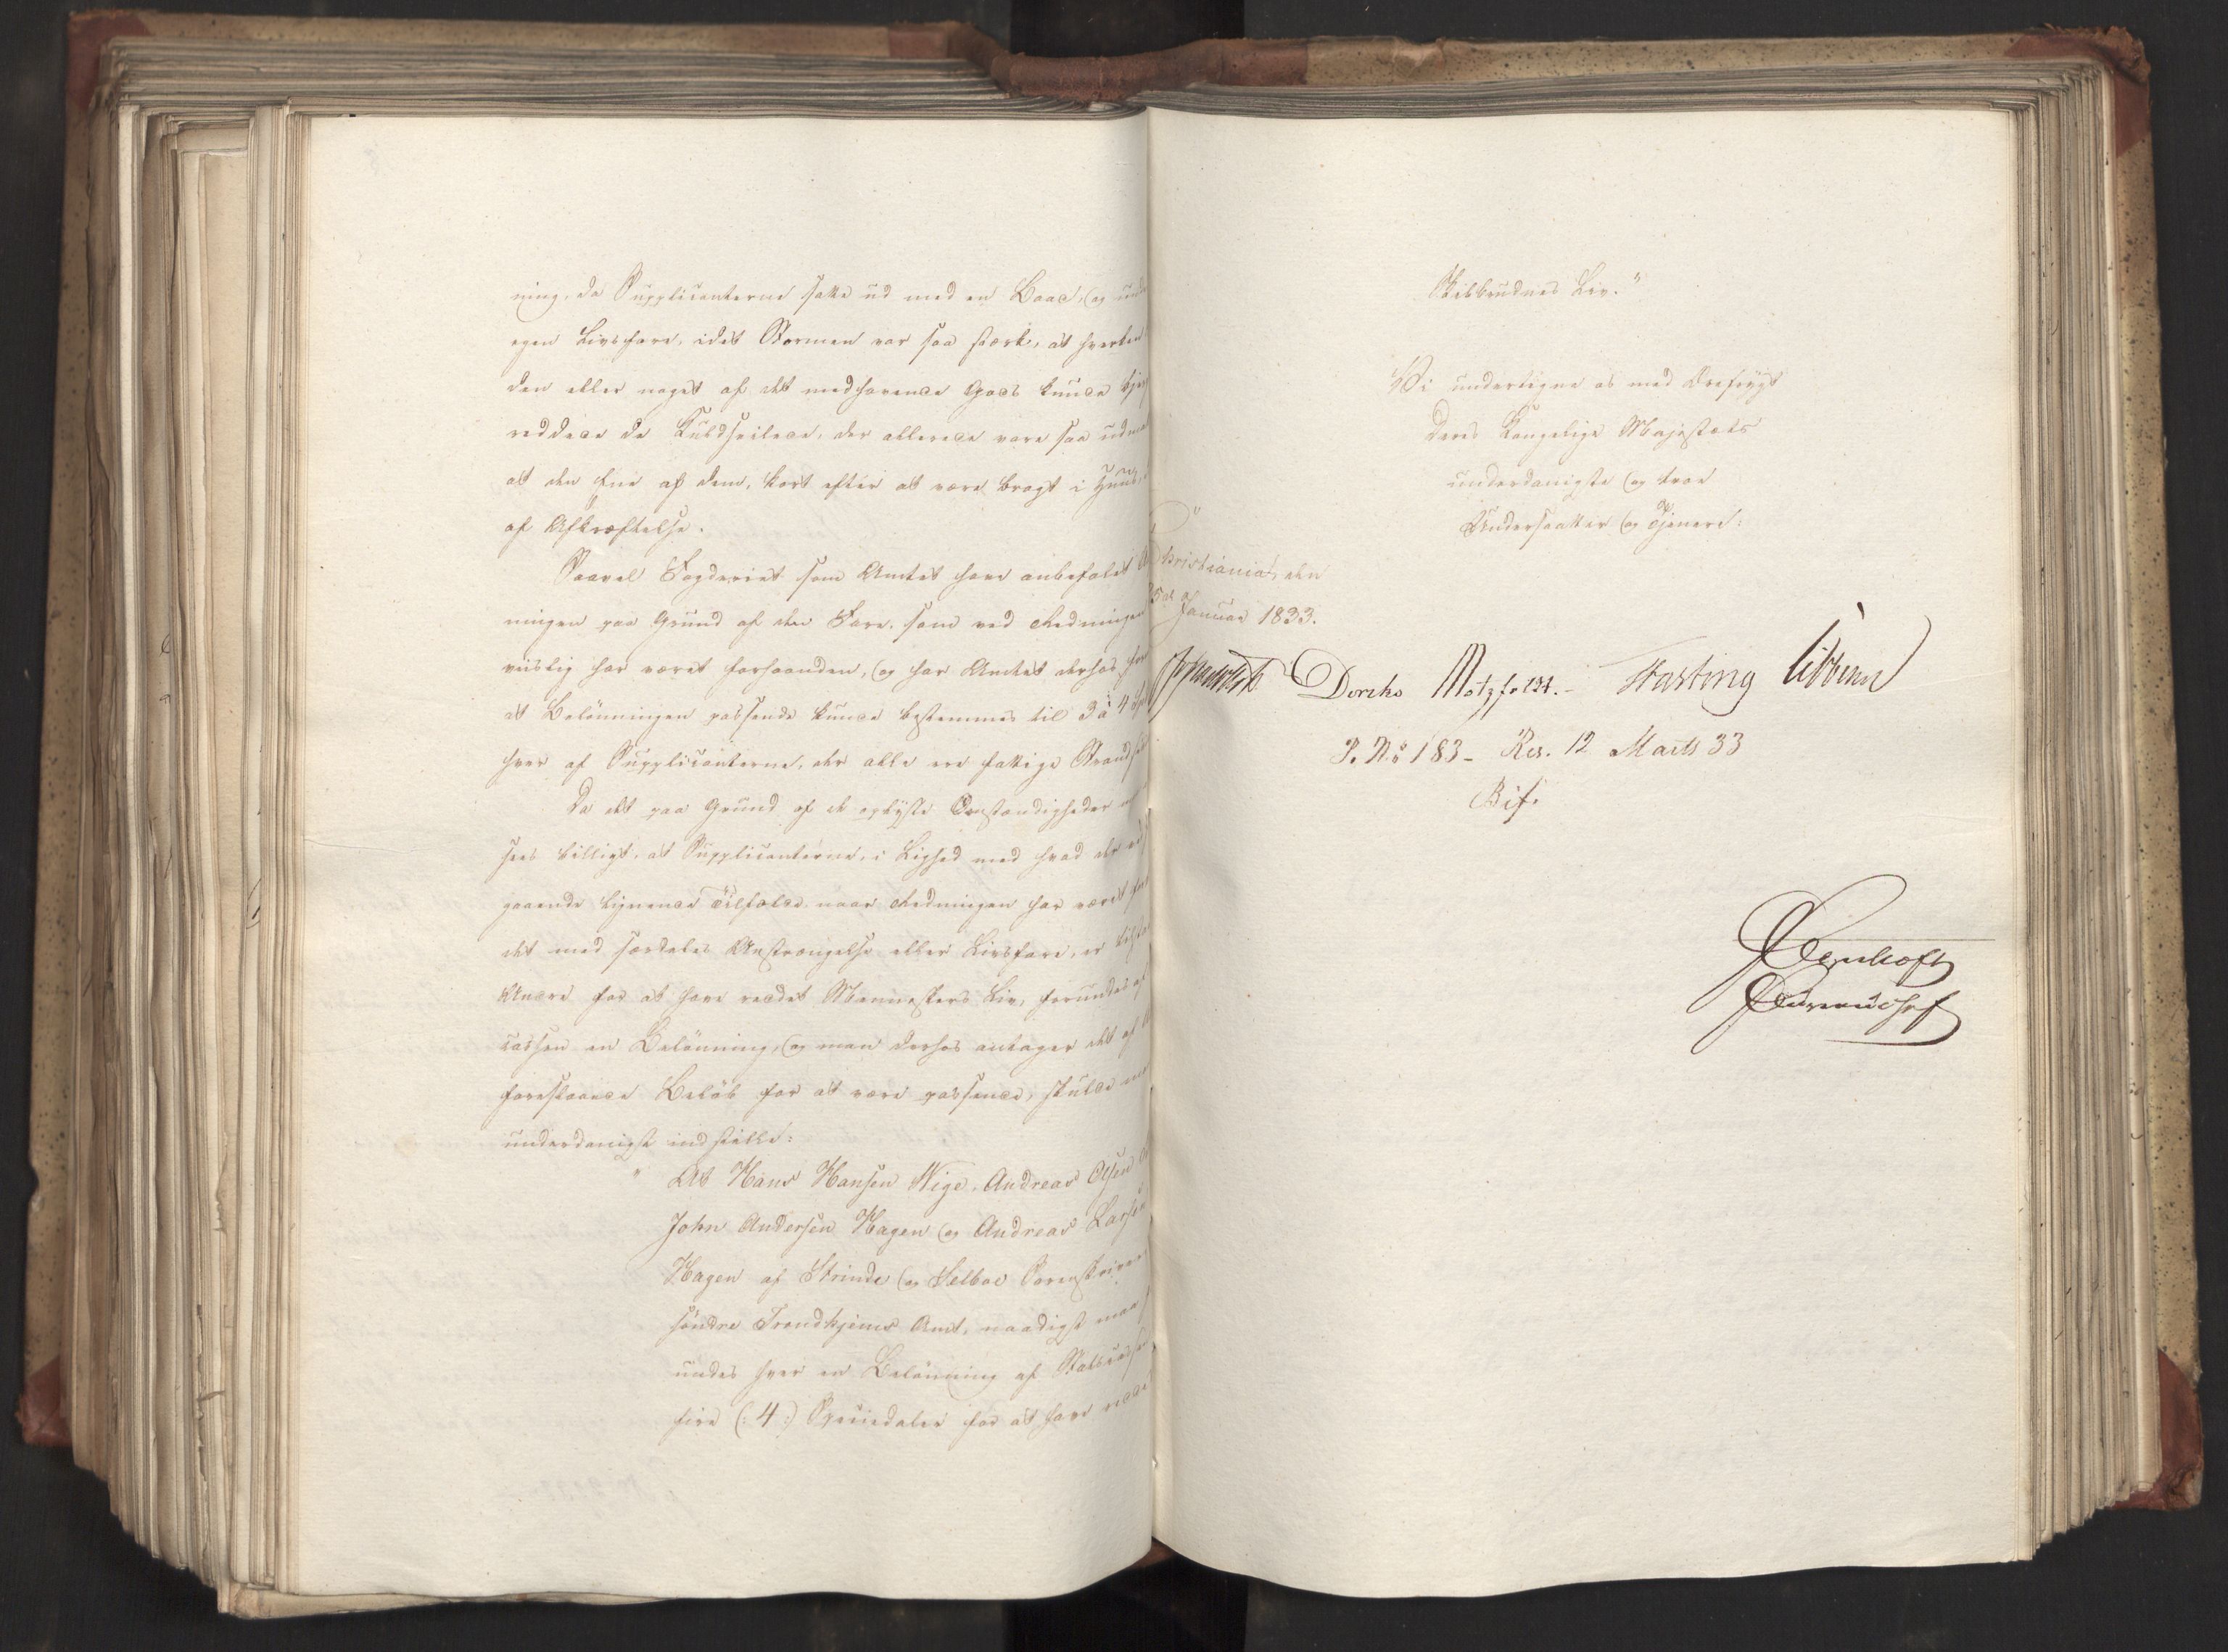 ning, da Supplicanterne satte ud med en Baad, og under
egen Livsfare, idet Stormen var saa stærk, at hverken
den eller noget af det medhavende Gods kunde bjer
reddede de Kuldseilede, der allerede vare saa udma
at den Ene af dem, kort efter at være bragt i Huus,
af Afkræftelse.
Saavel Fogderiet som Amtet have anbefalet A
ningen paa Grund af den Fare, som ved Redningen
viislig har været forhaanden, og har Amtet derhos
at Belønningen passende kunde bestemmes til 3 à 4
hver af Supplicanterne, der alle ere fattige Strands
Da det paa Grund af de oplyste Omstændigheder
sees billigt, at Supplicanterne, i Lighed med hvad der
gaaende lignende Tilfælde naar Redningen har været
det med særdeles Anstrængelse eller Livsfare, er tilsta
Andre for at have reddet Menneskers Liv, forundes af
cassen en Belønning, og man derhos antager det af
foreslaaede Beløb for at være passende, skulde man
underdanigst indstille:
" At Hans Hansen Wige, Andreas Olsen
John Andersen Hagen og Andreas Larsen
Hagen af Strinde og Selboe Sorenskriver
søndre Trondhjems Amt, naadigst maa
undes hver en Belønning af Statscassen
fire (: 4 :) Speciedaler for at have reddet
Skibbrudnes Liv."
Vi undertegne os med Ærefrygt
Deres Kongelige Majestæts
underdanigste og troe
Undersaatter og Tjenere:
Christiania, den
5d Januar 1833.
Diriks Motzfeldt. Fasting Vibbern
P. No 183 - Res. 12 Marts 33
Bif.